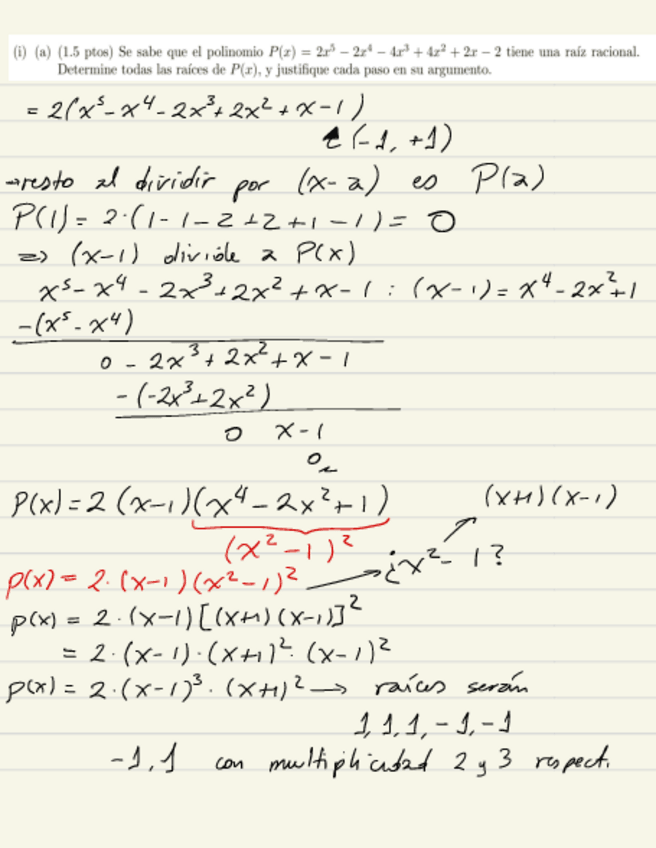 (i) (a) (1.5 ptos) Se sabe que el polinomio P(x) = 2x⁵ − 2x⁴ − 4x³ + 4x² + 2x − 2 tiene una raíz racional.
Determine todas las raíces de P(x), y justifique cada paso en su argumento.
= 2(x⁵ - x⁴ - 2x³ + 2x² + x - 1)
(-1, +1)
→ resto al dividir por (x-a) es P(a)
P(1) = 2·(1 - 1 - 2 + 2 + 1 - 1) = 0
=> (x-1) divide a P(x)
x⁵ - x⁴ - 2x³ + 2x² + x - 1 : (x-1) = x⁴ - 2x² + 1
-(x⁵ - x⁴)
0 - 2x³ + 2x² + x - 1
-(-2x³ + 2x²)
0 x-1
0
P(x) = 2(x-1)(x⁴ - 2x² + 1) (x+1)(x-1)
(x² - 1)² ¿x² - 1?
P(x) = 2·(x-1)(x²-1)²
P(x) = 2·(x-1)[(x+1)(x-1)]²
= 2·(x-1)·(x+1)²·(x-1)²
P(x) = 2·(x-1)³·(x+1)² → raíces serán
1, 1, 1, -1, -1
-1, 1 con multiplicidad 2 y 3 respect.